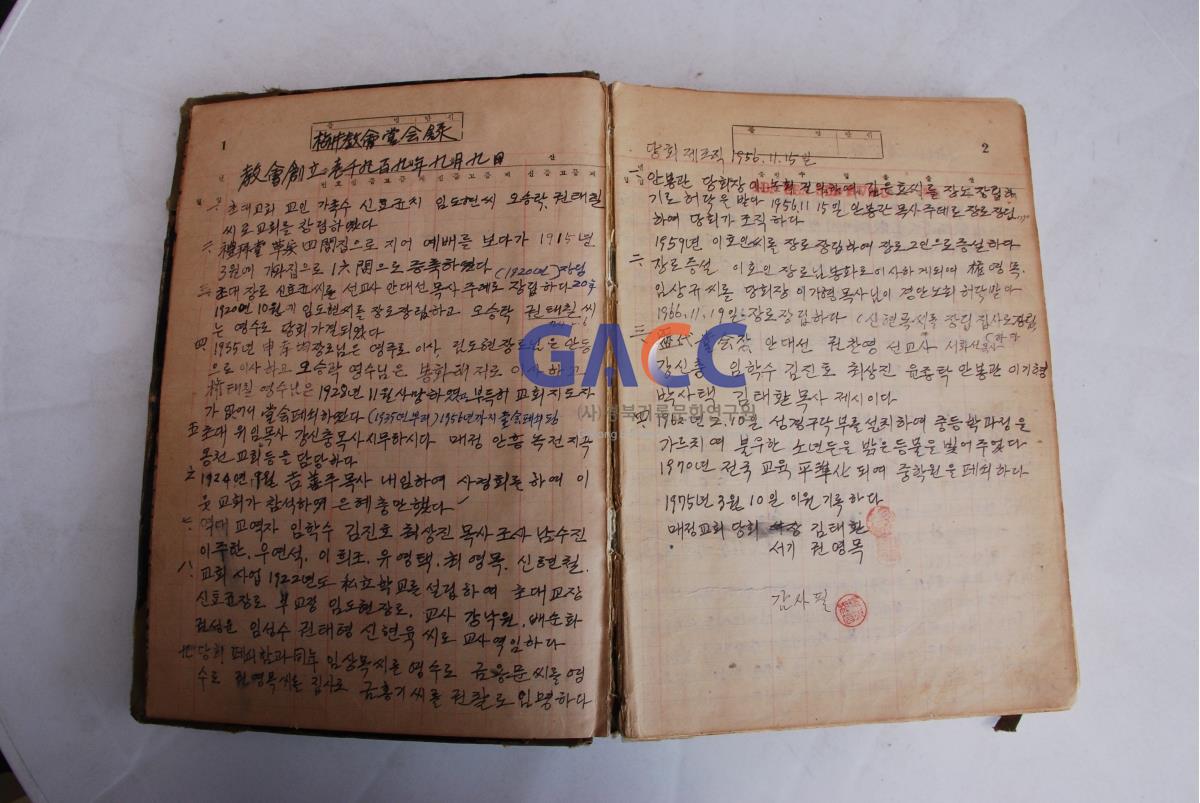 1
梅井敎會堂会录
敎會創立 壱千九百九年 九月 九日
一. 초대교회 교인 가족수 신효균씨 임도현씨 오승락, 권태칠
씨로 교회를 창립하였다
二. 禮拜堂 草家 四間집으로 지어 예배를 보다가 1915년
3월에 기와집으로 十六間으로 증축하였다
(1920년)
三. 초대 장로 신효균씨를 선교사 안대선 목사 주례로 장립하다
1920년 10월 임도현씨를 장로장립하고 오승락 권태칠 씨
는 영수로 당회가결되였다
四. 1935년 申 장로님은 영주로 이사, 임도현장로님은 안동
으로 이사하고 오승락 영수님은 봉화 로 이사하고
권태칠 영수님은 1928년 11월 사망하였 부득히 교회지도자
가 없어서 堂会폐쇄하였다 (1935년부터 1956년까지 堂会폐쇄됨
五. 초대 위임목사 강신충목사시무하시다 매정 안흥 녹전 지곡
옹천 교회등을 담당하다
六. 1924년, 吉善宙목사 내임하여 사경회를 하여 이
웃교회가 참석하여 은혜충만했다
七. 역대 교역자 임학수 김진호 최상진 목사 조사 남수진
이주한, 우연석, 이희조, 유영택, 최영목, 신현철.
八. 교회 사업 1922년도 私立학교를 설립하여 초대교장
신효균장로 부교장 임도현장로, 교사 강낙원, 배순화
임성수 권태형 신현욱 씨로 교사역임하다
九. 당회 폐쇄함과 同年 임상목씨를 영수로 금용문씨를 영
수로 권영목씨를 집사로 금홍기씨를 권찰로 임명하다
2
당회 제조직 1956.11.15일
一. 안봉관 당회장이 노회 김은효씨를 장로 장립하
기로 허락을 받다 1956.11 15일 안봉관목사 주례로 장로장립
하여 당회가 조직하다
1959년 이호인씨를 장로장립하여 장로2인으로증설하다
二. 장로증설 이호인 장로님 봉화로이사하게되여 權영목.
임상규씨를 당회장 이가형목사님이 경안노회 허락받아
1966.11.19일 장로장립하다 (신현목씨를 장립 집사로 장립
三. 歷代 堂会장, 안대선 권찬영 선교사
강신충 임학수 김진호 최상진 윤종탁 안봉관 이기형
박사택 김태환목사 제시이다
四. 1962년 2.10일 성경구락부를 설치하여 중등학과정을
가르치여 불우한 소년들을 밝은등불을 빛어주었다
1970년 전국 교육 平準化 되여 중학원을 폐쇄하다
1975년 3월 10일 이원기록하다
매정교회 당회 장 김태환
서기 권영목
감사필
GACC
(사)경북기록문화연구원